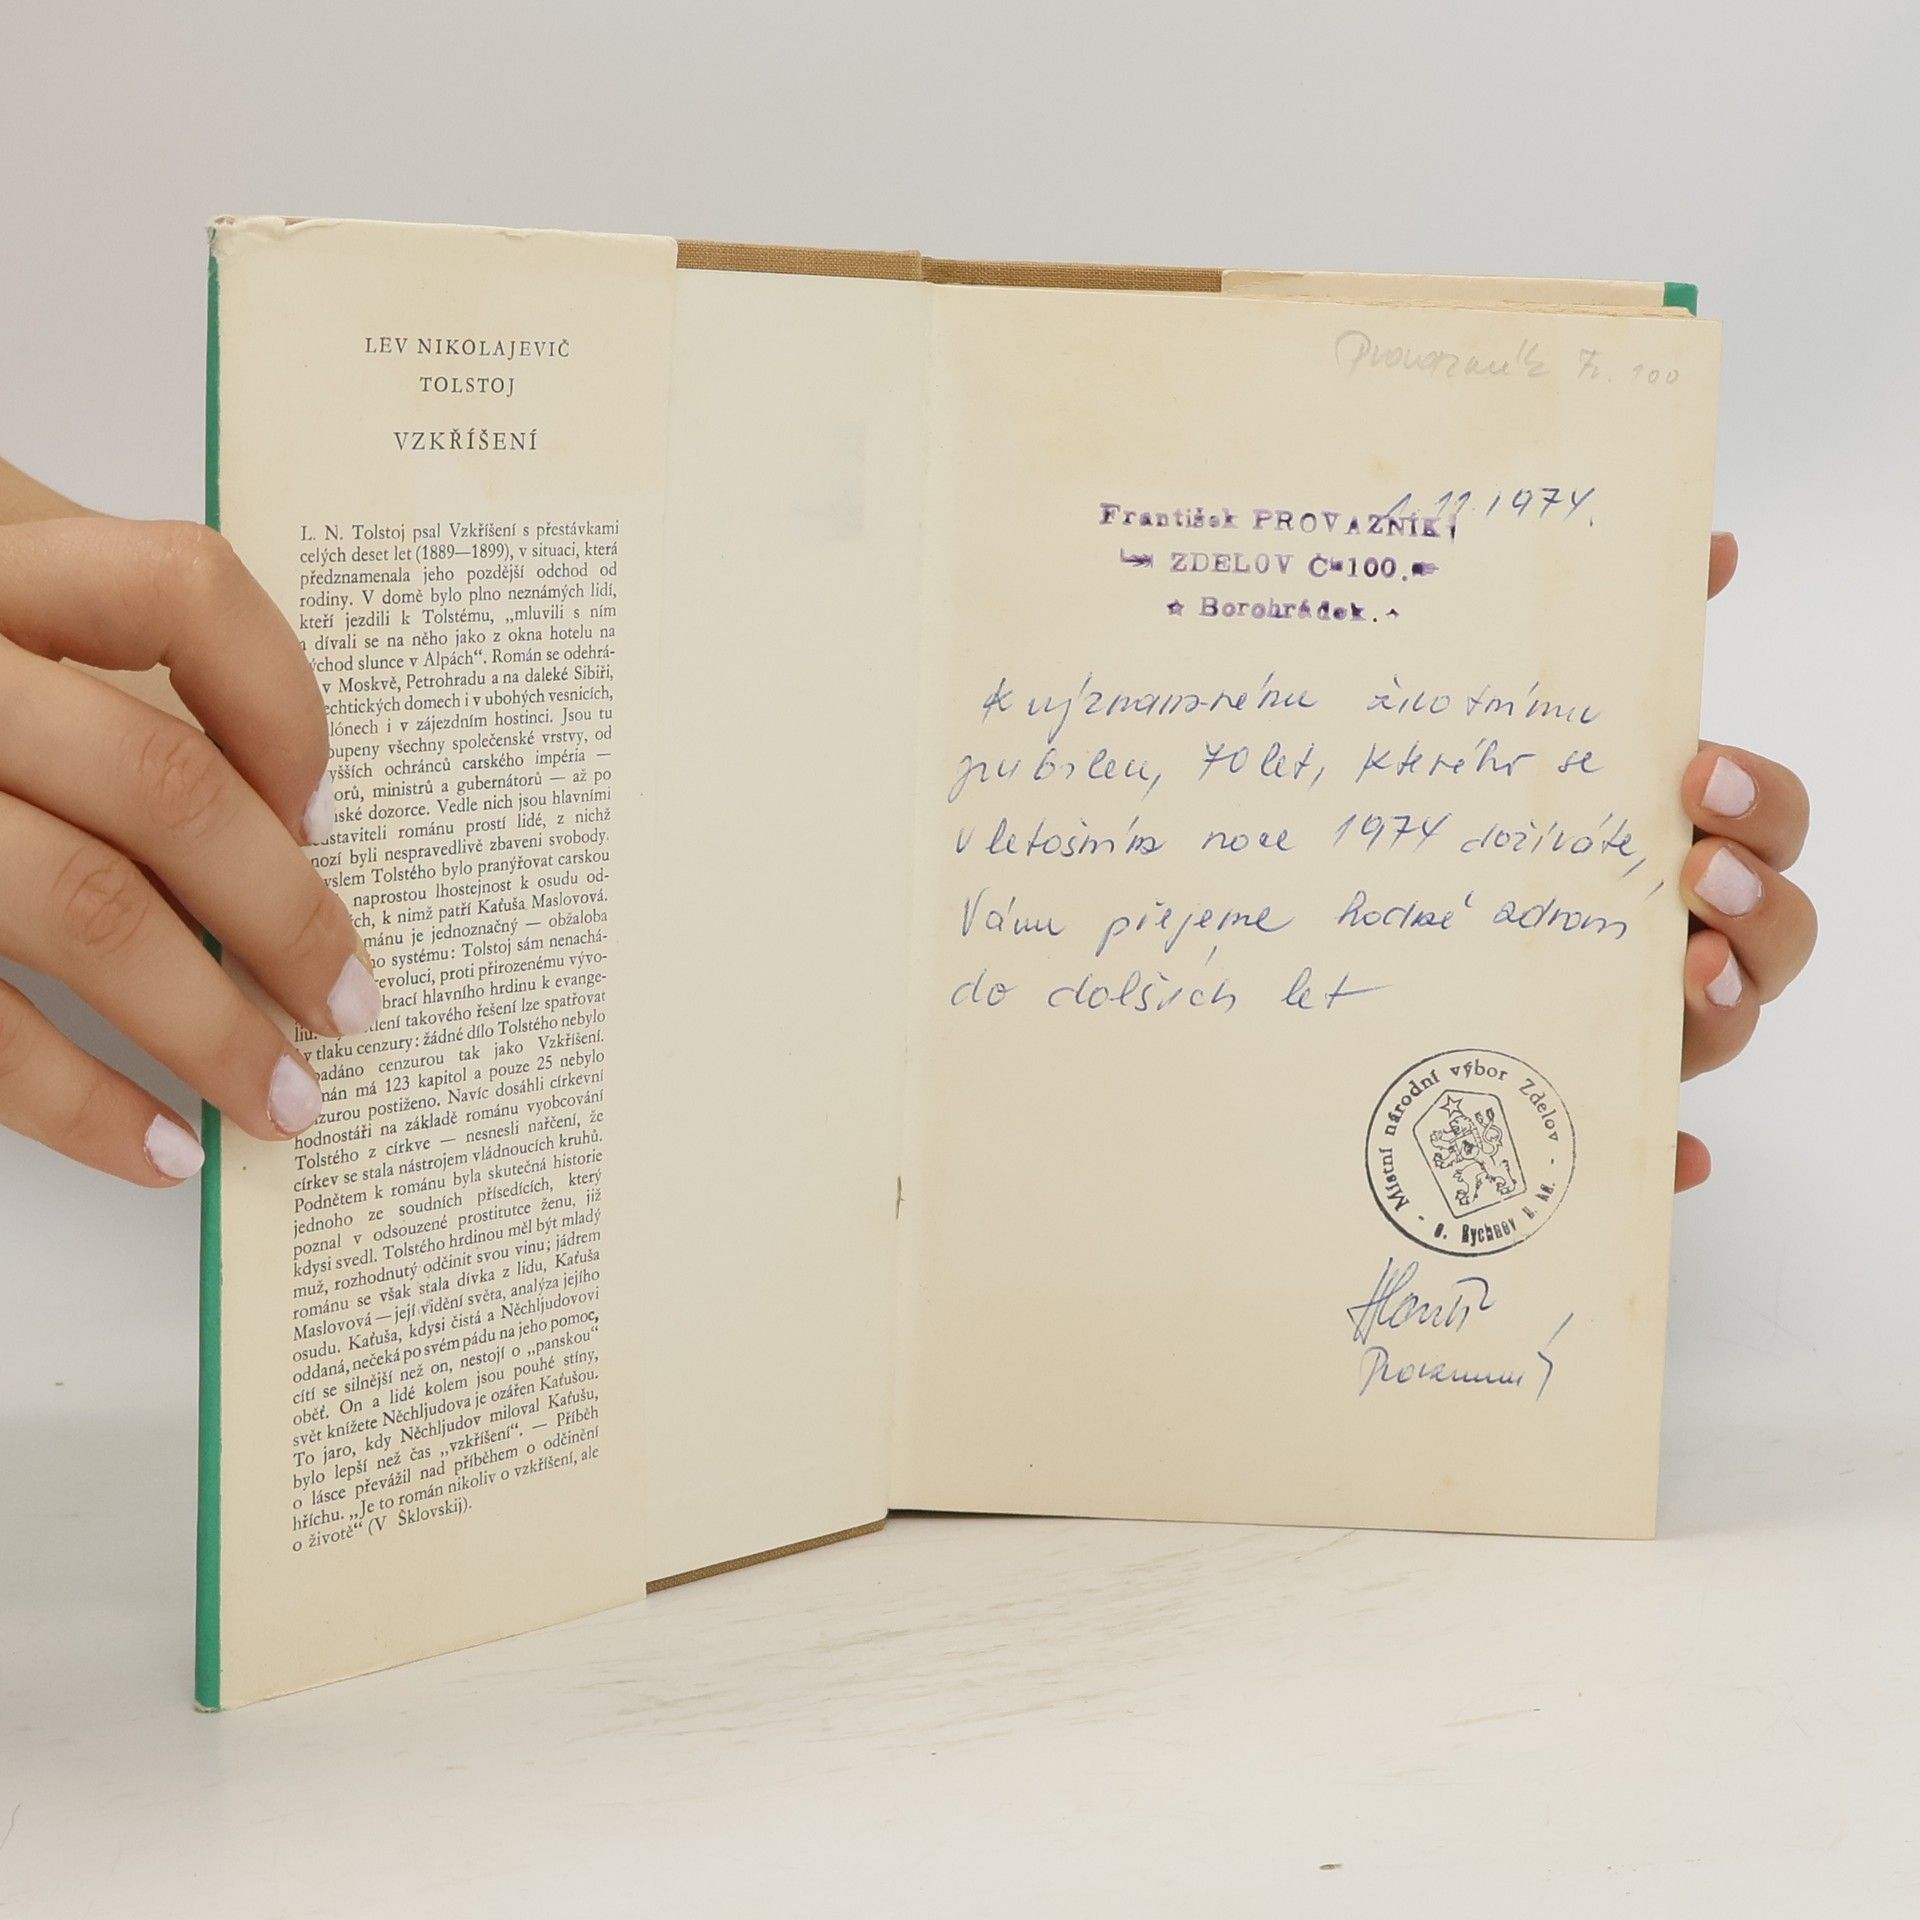 LEV NIKOLAJEVIČ
TOLSTOJ
VZKŘÍŠENÍ
L. N. Tolstoj psal Vzkříšení s přestávkami
celých deset let (1889—1899), v situaci, která
předznamenala jeho pozdější odchod od
rodiny. V domě bylo plno neznámých lidí,
kteří jezdili k Tolstému, „mluvili s ním
a dívali se na něho jako z okna hotelu na
východ slunce v Alpách“. Román se odehrá-
v Moskvě, Petrohradu a na daleké Sibiři,
echtických domech i v ubohých vesnicích,
lónech i v zájezdním hostinci. Jsou tu
oupeny všechny společenské vrstvy, od
yšších ochránců carského impéria —
orů, ministrů a gubernátorů — až po
ské dozorce. Vedle nich jsou hlavními
dstaviteli románu prostí lidé, z nichž
nozí byli nespravedlivě zbaveni svobody.
yslem Tolstého bylo pranýřovat carskou
naprostou lhostejnost k osudu od-
ch, k nimž patří Kaťuša Maslovová.
mánu je jednoznačný — obžaloba
ho systému: Tolstoj sám nenachá-
revoluci, proti přirozenému vývo-
brací hlavního hrdinu k evange-
liu. tlení takového řešení lze spatřovat
v tlaku cenzury: žádné dílo Tolstého nebylo
padáno cenzurou tak jako Vzkříšení.
mán má 123 kapitol a pouze 25 nebylo
nzurou postiženo. Navíc dosáhli církevní
hodnostáři na základě románu vyobcování
Tolstého z církve — nesnesli nařčení, že
církev se stala nástrojem vládnoucích kruhů.
Podnětem k románu byla skutečná historie
jednoho ze soudních přísedících, který
poznal v odsouzené prostitutce ženu, již
kdysi svedl. Tolstého hrdinou měl být mladý
muž, rozhodnutý odčinit svou vinu; jádrem
románu se však stala dívka z lidu, Kaťuša
Maslovová — její vidění světa, analýza jejího
osudu. Kaťuša, kdysi čistá a Něchljudovovi
oddaná, nečeká po svém pádu na jeho pomoc,
cítí se silnější než on, nestojí o „panskou“
oběť. On a lidé kolem jsou pouhé stíny,
svět knížete Něchljudova je ozářen Kaťušou.
To jaro, kdy Něchljudov miloval Kaťušu,
bylo lepší než čas „vzkříšení“. — Příběh
o lásce převážil nad příběhem o odčinění
hříchu. „Je to román nikoliv o vzkříšení, ale
o životě“ (V Šklovskij).
Provazník Fr. 100
1.11.1974.
František PROVAZNÍK
ZDELOV Č 100.
Borohrádek.
K významnému životnímu
jubileu, 70 let, kterého se
v letošním roce 1974 dožíváte,
Vám přejeme hodně zdraví
do dalších let
Místní národní výbor Zdelov
o. Rychnov n. Kn.